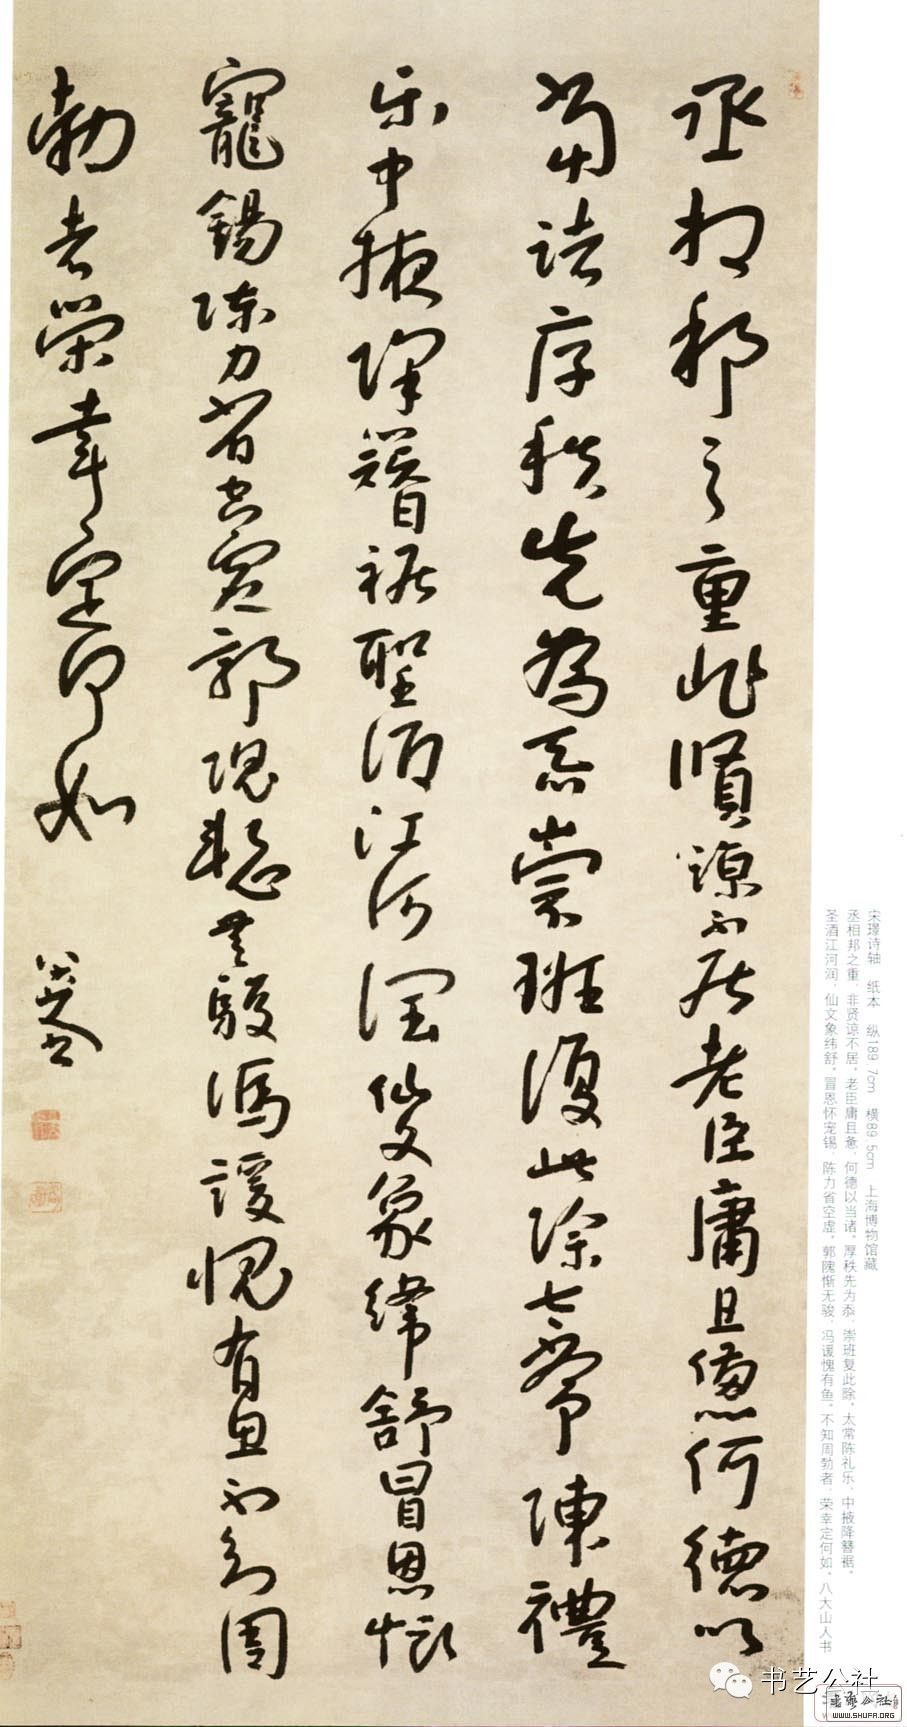 丞相邦之重非賢諒不居老臣庸且憊何德以
當諸厚秩先為忝崇班復此除太常陳禮
樂中掖降簪裾聖酒江河潤仙文象緯舒冒恩懷
寵錫陳力省空虛郭隗慙無駿馮諼愧有魚不知周
勃者榮幸定何如
八大山人
宋璟诗轴 纸本 纵189 7cm 横89 5cm 上海博物馆藏
丞相邦之重，非贤谅不居，老臣庸且惫，何德以当诸，厚秩先为忝，崇班复此除，太常陈礼乐，中掖降簪裾，
圣酒江河润，仙文象纬舒，冒恩怀宠锡，陈力省空虚，郭隗惭无骏，冯谖愧有鱼，不知周勃者，荣幸定何如，八大山人书
书艺公社
書藝公社
WWW.SHUFA.ORG